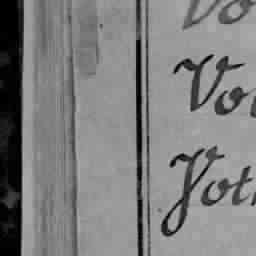 Vo
Vo
Vot